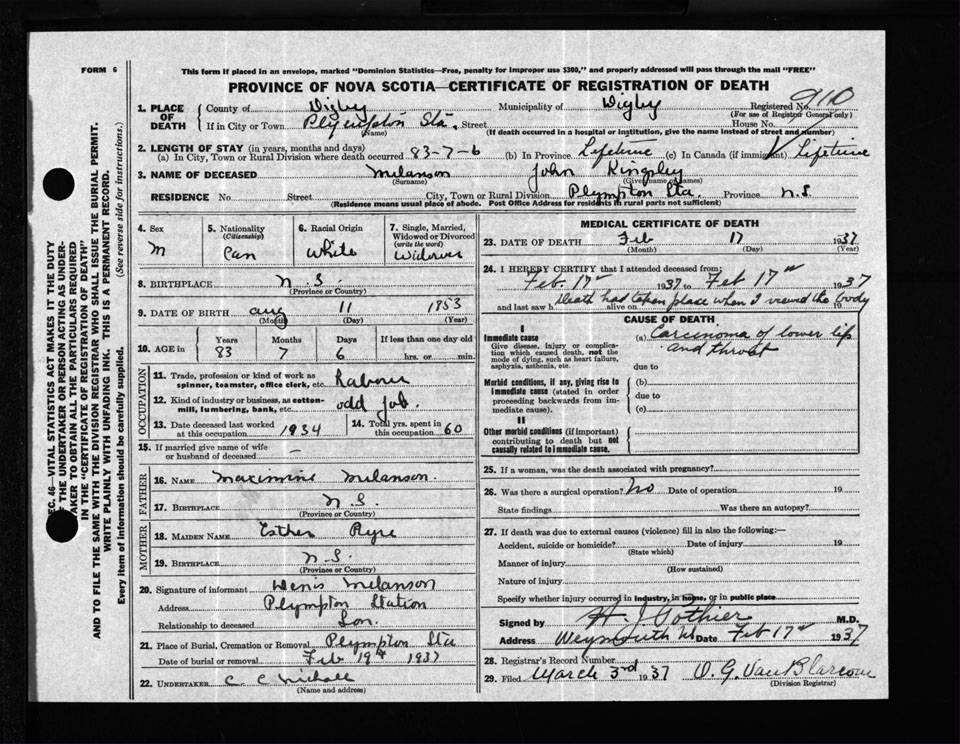 FORM 6
This form if placed in an envelope, marked "Dominion Statistics—Free, penalty for improper use $300," and properly addressed will pass through the mail "FREE"
PROVINCE OF NOVA SCOTIA—CERTIFICATE OF REGISTRATION OF DEATH
1. PLACE OF DEATH County of Digby Municipality of Digby Registered No. 910
(For use of Registrar General only)
If in City or Town Plympton Sta. Street House No.
(Name) (If death occurred in a hospital or institution, give the name instead of street and number)
2. LENGTH OF STAY (in years, months and days)
(a) In City, Town or Rural Division where death occurred 83-7-6 (b) In Province Lifetime (c) In Canada (if immigrant) Lifetime
3. NAME OF DECEASED Melanson John Kingsley
(Surname) (Given name or names)
RESIDENCE No Street City, Town or Rural Division Plympton Sta. Province N.S.
(Residence means usual place of abode. Post Office Address for residents in rural parts not sufficient)
4. Sex M
5. Nationality (Citizenship) Can
6. Racial Origin White
7. Single, Married, Widowed or Divorced (write the word) Widower
8. BIRTHPLACE N.S.
(Province or Country)
9. DATE OF BIRTH Aug 11 1853
(Month) (Day) (Year)
10. AGE in Years 83 Months 7 Days 6 If less than one day old hrs. or min.
OCCUPATION
11. Trade, profession or kind of work as spinner, teamster, office clerk, etc. Labour
12. Kind of industry or business, as cotton-mill, lumbering, bank, etc. odd job.
13. Date deceased last worked at this occupation 1934
14. Total yrs. spent in this occupation 60
15. If married give name of wife or husband of deceased —
FATHER
16. NAME Melanson.
17. BIRTHPLACE N.S.
(Province or Country)
MOTHER
18. MAIDEN NAME Esther
19. BIRTHPLACE N.S.
(Province or Country)
20. Signature of informant Denis Melanson
Address Plympton Station
Relationship to deceased Son.
21. Place of Burial, Cremation or Removal Plympton Sta
Date of burial or removal Feb 19th 1937
22. UNDERTAKER C. C.
(Name and address)
MEDICAL CERTIFICATE OF DEATH
23. DATE OF DEATH Feb 17 1937
(Month) (Day) (Year)
24. I HEREBY CERTIFY that I attended deceased from:
Feb. 17th 1937 to Feb 17th 1937
and last saw h alive on Death had taken place when I viewed the body 19
CAUSE OF DEATH
I
Immediate cause
Give disease, injury or complication which caused death, not the mode of dying, such as heart failure, asphyxia, asthenia, etc.
(a) Carcinoma of lower lip and throat
due to
Morbid conditions, if any, giving rise to immediate cause (stated in order proceeding backwards from immediate cause).
(b)
due to
(c)
II
Other morbid conditions (if important) contributing to death but not causally related to immediate cause.
25. If a woman, was the death associated with pregnancy?
26. Was there a surgical operation? No Date of operation 19
State findings Was there an autopsy?
27. If death was due to external causes (violence) fill in also the following:—
Accident, suicide or homicide? Date of injury 19
(State which)
Manner of injury
(How sustained)
Nature of injury
Specify whether injury occurred in industry, in home, or in public place
Signed by H. J. Pothier M.D.
Address Weymouth NS Date Feb 17th 1937
28. Registrar's Record Number
29. Filed March 3rd 1937 O. G. Van Blarcom
(Division Registrar)
SEC. 46—VITAL STATISTICS ACT MAKES IT THE DUTY
OF THE UNDERTAKER OR PERSON ACTING AS UNDERTAKER TO OBTAIN ALL THE PARTICULARS REQUIRED
IN THE "CERTIFICATE OF REGISTRATION OF DEATH"
AND TO FILE THE SAME WITH THE DIVISION REGISTRAR WHO SHALL ISSUE THE BURIAL PERMIT.
WRITE PLAINLY WITH UNFADING INK. THIS IS A PERMANENT RECORD.
Every item of information should be carefully supplied. (See reverse side for instructions.)